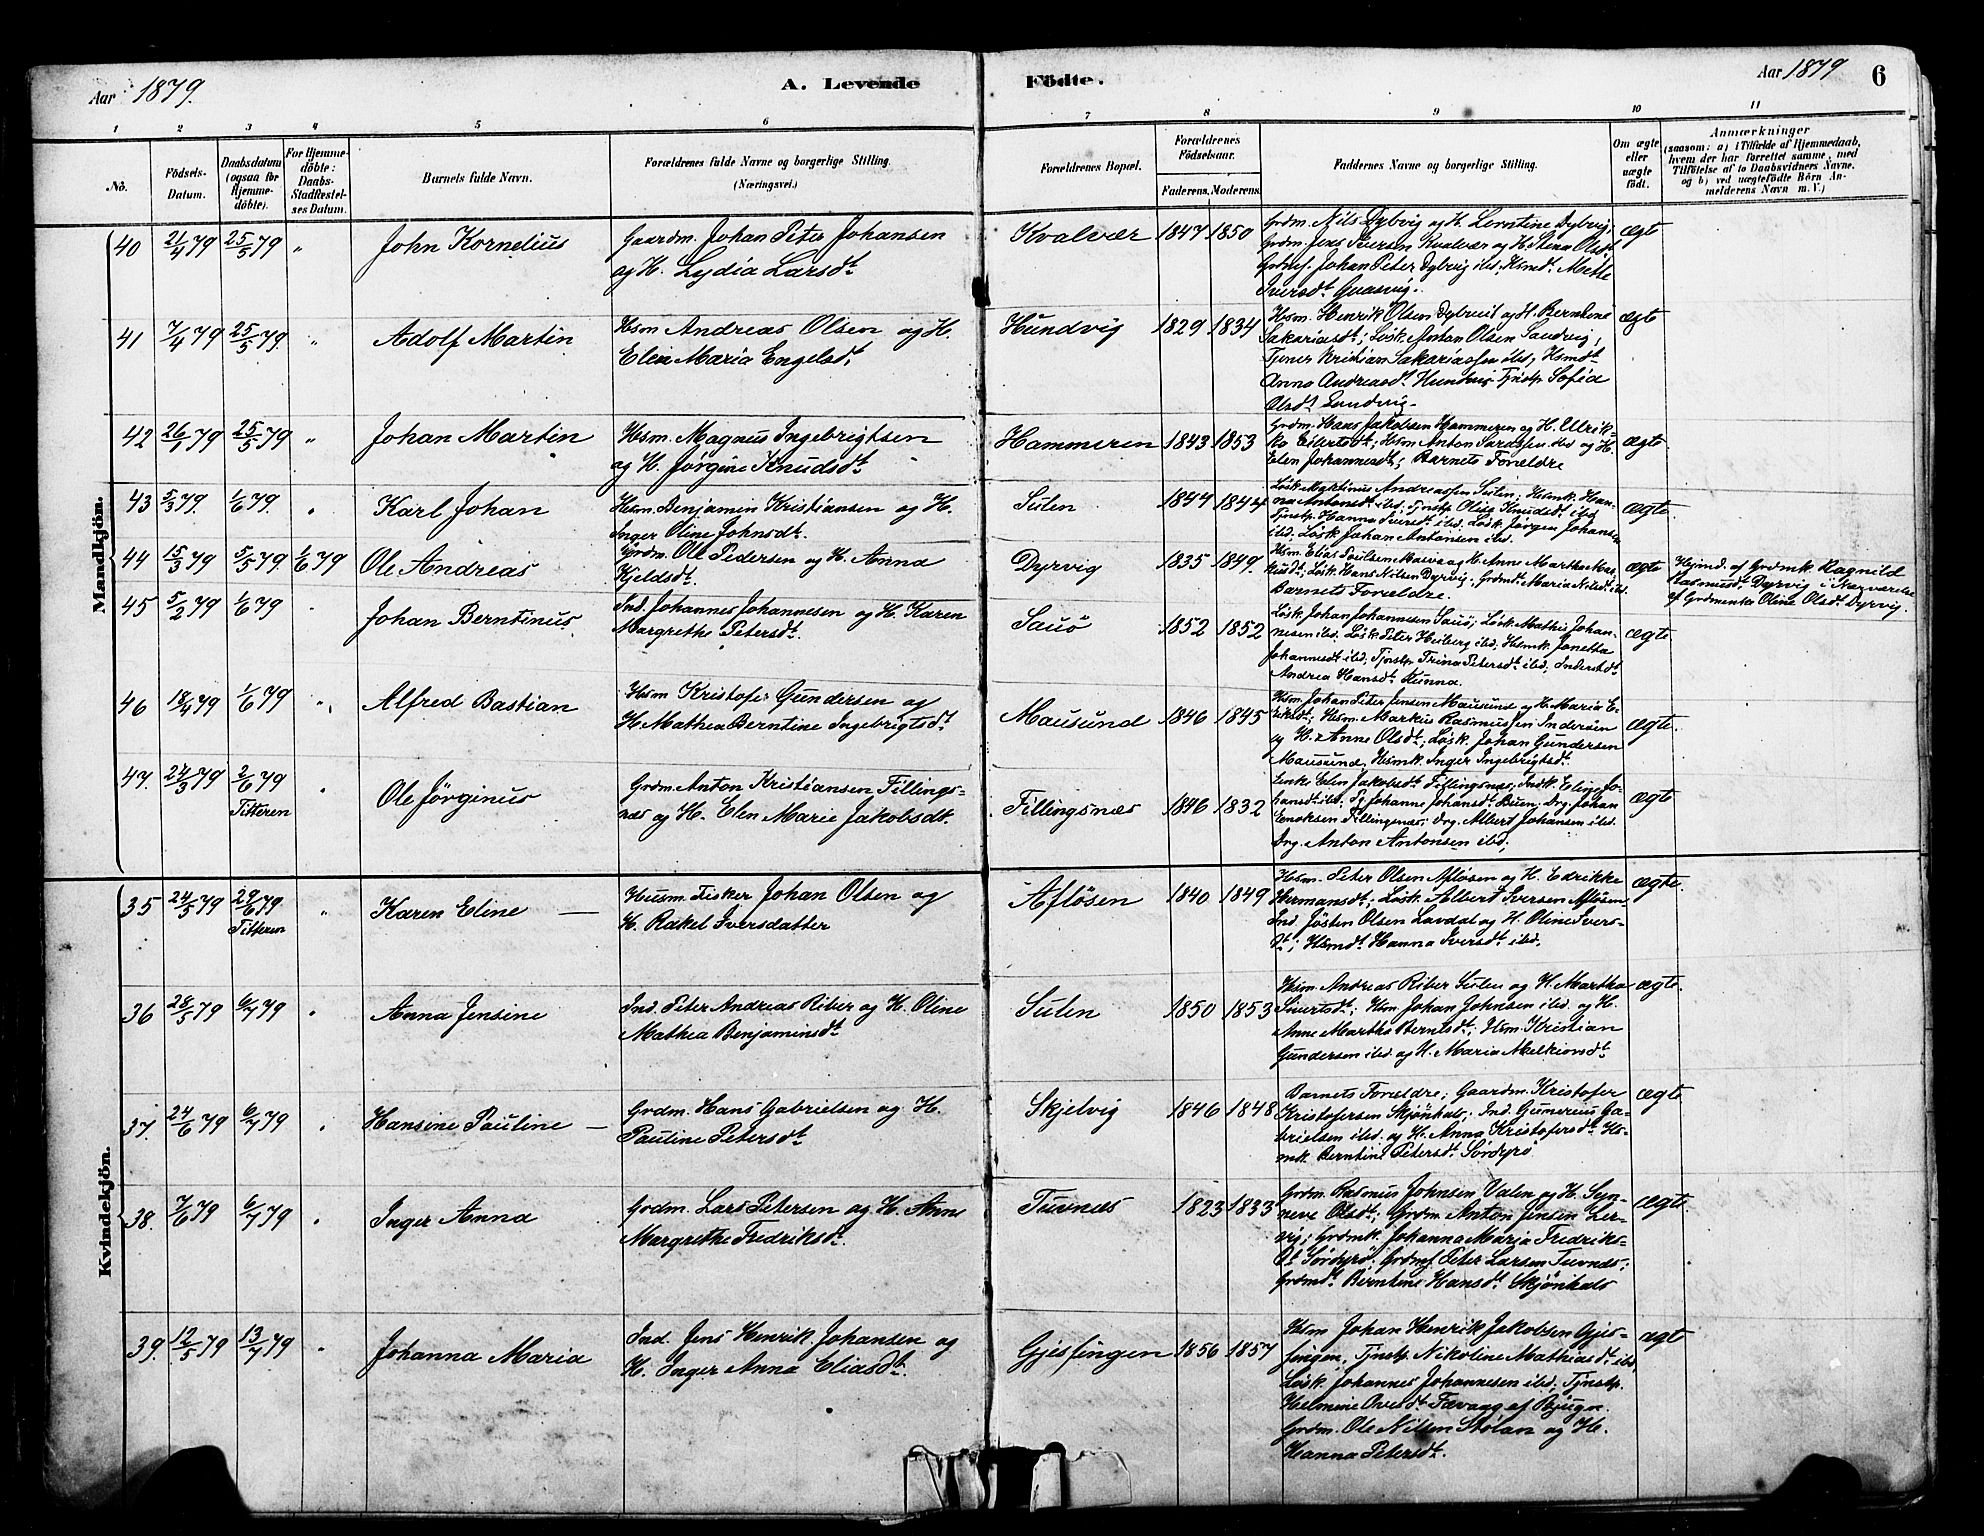 Aar 1879.
A. Levende Födte.
Aar 1879
6
1 2 3 4 5 6 7 8 9 10 11
No.
Födsels-
Datum.
Daabsdatum
(ogsaa for
Hjemme-
döbte).
For Hjemme-
döbte:
Daabs-
Stadfæstel-
ses Datum.
Barnets fulde Navn.
Forældrenes fulde Navne og borgerlige Stilling.
(Næringsvei.)
Forældrenes Bopæl.
Forældrenes
Födselsaar.
Faderens. Moderens.
Faddernes Navne og borgerlige Stilling.
Om ægte
eller
uægte
födt.
Anmærkninger
(saasom: a) i Tilfælde af Hjemmedaab,
hvem der har forrettet samme, med
Tilföielse af to Daabsvidners Navne,
og b) ved uægtefödte Börn An-
melderens Navn m. V.)
Mandkjön.
40 21/4 79 25/5 79 " John Kornelius
Gaardm. Johan Peter Johansen
og H. Lydia Larsdt
Kvalvær 1847 1850
Grdm. Nils Dybvig og H. Berntine Dybvig,
Grdm. Jens Iversen Kvalvær og H. Stina Olsdt
Grdmf. Johan Peter Dybvig ibd. Hsmdt Mette
Iversdt
ægt
41 7/4 79 25/5 79. " Adolf Martin
Hsm Andreas Olsen og H.
Elen Maria Engelsdt.
Hundvig 1829 1834
Hsm. Henrik Olsen Dybvik og H. Berntine
Sakariasdt; Løsk. Anton Olsen Sandvig,
Tjener Kristian Sakariassen ibd, Hsmdt
Anna Andreasdt Hundvig Tjnstp. Sofia
Olsdt Sandvig.
ægte
42 26/4 79 25/5 79 " Johan Martin
Hsm. Magnus Ingebrigtsen
og H. Jørgine Knudsdt.
Hammeren 1843 1853
Grdm. Hans Jakobsen Hammeren og H. Ulrik-
ke Eilertsdt; Hsm Anton ibd og H.
Elen Johannesdt; Barnets Forældre
ægte.
43 5/3 79. 1/6 79. " Karl Johan
Hsm. Benjamin Kristiansen og H.
Inger Oline Johnsdt.
Sulen 1844 1844
Løsk Martinus Andreassen Sulen; Hsmk. Han-
na Antonsdt ibd; Tjnstp Oline Knudsdt ibd,
Tjnstp. Hanna Iversdt ibd. Løsk. Jørgen Johansen
ibd. Løsk Johan Antonsen ibd.
ægte.
44 15/3 79 5/5 79. 1/6 79 Ole Andreas
Grdm. Ole Pedersen og H. Anna
Kjeldsdt.
Dyrvig 1835 1849.
Hsm. Elias Paulsen og H. Anne Martha Mar-
kusdt; Løsk. Hans Nilsen Dyrvig, Grdmdt Maria Nilsdt ibd.
Barnets Forældre.
ægte
Hejmd. af Grdmk. Ragnild
Rasmusdt Dyrvig i Nærværelse
af Grdmenka Oline Olsdt Dyrvig.
45 5/2 79 1/6 79 " Johan Berntinus.
Ind. Johannes Johannesen og H. Karen
Margrethe Petersdt.
Sauø 1852 1852
Løsk. Johan Johannesen Sauø; Løsk Mathis Johan-
nesen ibd. Løsk Peter Heiberg ibd. Hsmk. Jonetta
Johannesdt ibd. Tjnstp. Trina Petersdt ibd. Inderstdt
Andrea Hansdt Kunna.
ægte.
46 18/4 79 1/6 79 " Alfred Bastian
Hsm Kristofer Gundersen og
H. Mathea Berntine Ingebrigtsdt.
Mausund 1846 1845
Hsm. Johan Peter Jensen Mausund og H. Maria E-
riksdt; Hsm. Markus Rasmussen Inderøen
og H. Anne Olsdt; Løsk. Johan Gundersen
Mausund, Hsmk. Inger Ingebrigtsdt.
ægte.
47. 27/3 79 2/6 79 Titteren " Ole Jørginus
Grdm. Anton Kristiansen Fillings-
næs og H. Elen Marie Jakobsdt.
Fillingsnæs 1846 1832
Enke Elen Jakobsdt Fillingsnæs, Indk. Eline Jo-
hansdt ibd. Pg. Johanne Johansdt Buen; Drg. Johan
Enoksen Fillingsnæs; Drg. Albert Johansen ibd.
Drg. Anton Antonsen ibd;
ægte
Kvindekjön.
35 24/5 79 29/6 79 Titteren " Karen Eline —
Husm. Fisker Johan Olsen og
H. Rakel Iversdatter
Afløsen 1840 1849
Hsm. Peter Olsen Afløsen og H. Edrikke
Hermansdt; Løsk. Albert Iversen Afløsen
Ind. Jøsten Olsen Lavdal og H. Oline Ivers-
dt; Hsmdt Hanna Iversdt ibd.
ægte.
36 28/5 79 6/7 79 " Anna Jensine
Ind. Peter Andreas Riber og H. Oline
Mathea Benjaminsdt
Sulen 1850 1853
Hsm. Andreas Riber Sulen og H. Martha
Sivertsdt; Hsm. Johan Johnsen ibd og H.
Anne Martha Berntsdt; Hsm. Kristian
Gundersen ibd og H. Maria Melkiorsdt
ægte.
37. 24/6 79 6/7 79 " Hansine Pauline —
Grdm. Hans Gabrielsen og H.
Pauline Petersdt
Skjelvig 1846 1848
Barnets Forældre; Gaardm. Kristofer
Kristofersen Skjønhals; Ind. Gunerius Ga-
brielsen ibd. og H. Anna Kristofersdt Hs-
mk. Berntine Petersdt Sørdyrø
ægte
38. 7/6 79 6/7 79 " Inger Anna
Grdm. Lars Petersen og H. Anne
Margrethe Fredriksdt.
Tuvnæs 1823 1833
Grdm. Rasmus Johnsen Valen og H. Syn-
neve Olsdt; Grdm. Anton Jensen Ler-
vig; Grdmk. Johanna Maria Fredriks-
dt Sørdyrø; Grdmf. Peter Larsen Tuvnæs;
Grdmdt Berntine Hansdt Skjønhals
ægte
39. 12/5 79 13/7 79 " Johanna Maria
Ind. Jens Henrik Johansen og
H. Inger Anna Eliasdt.
Gjesfingen 1856 1857
Hsm Johan Henrik Jakobsen Gjes-
fingen, Tjnstp. Nikoline Mathiasdt ibd,
Løsk. Johannes Johannesen ibd, Tjnstp.
Helmine Ovesdt Fævaag af Bjugn.
Grdm. Ole Nilsen Stølan og H.
Hanna Petersdt.
ægt